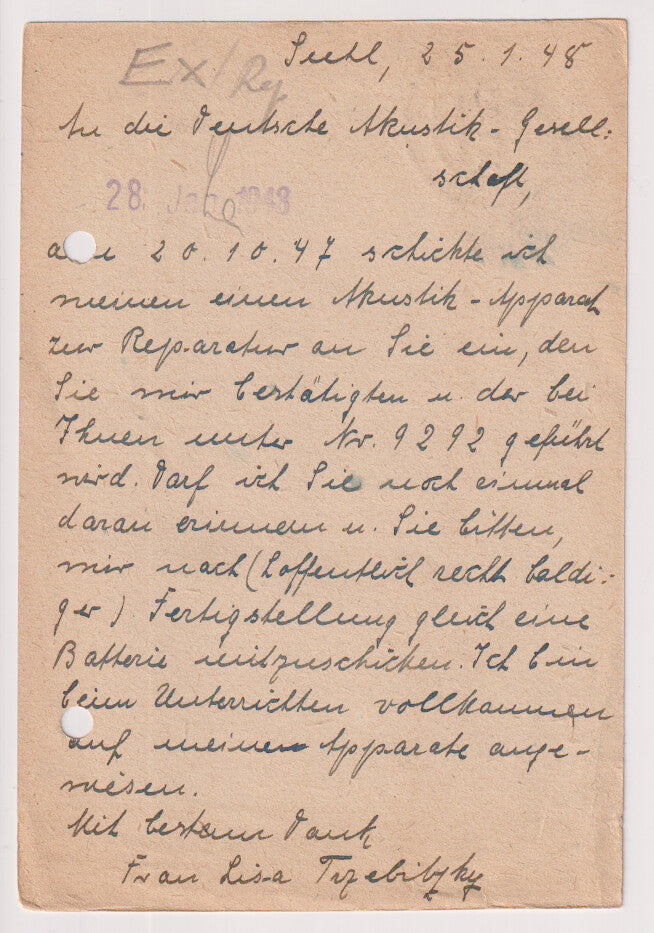 Suhl, 25.1.48
Ex/Ry
An die Deutsche Akustik-Gesell-
schaft,
28. Jan. 1948
am 20.10.47 schickte ich
meinen einen Akustik-Apparat
zur Reparatur an Sie ein, den
Sie mir bestätigten u. der bei
Ihnen unter Nr. 9292 geführt
wird. Darf ich Sie noch einmal
daran erinnern u. Sie bitten,
mir nach (hoffentlich recht baldi-
ger) Fertigstellung gleich eine
Batterie mitzuschicken. Ich bin
beim Unterrichten vollkommen
auf meine Apparate ange-
wiesen.
Mit bestem Dank
Frau Lisa Trzebitzky